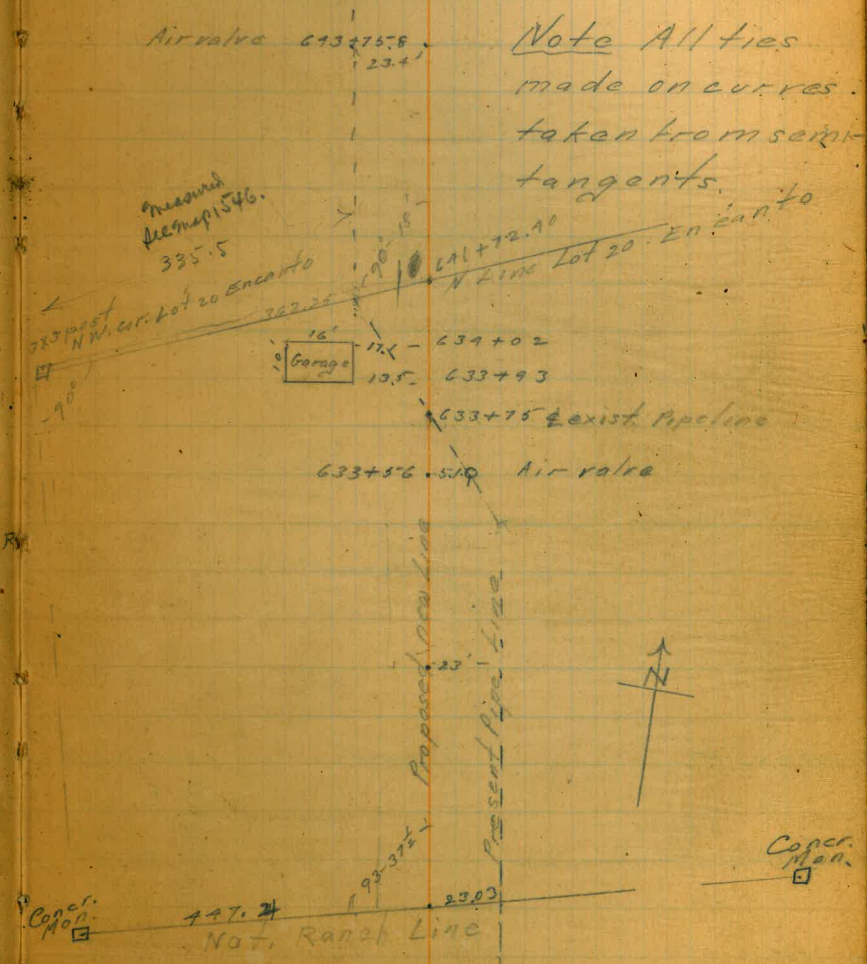 Air valve 643+75.8
23.4'
Note All ties
made on curves
taken from semi-
tangents.
measured
see map 1546.
335.5
3x3 post
N.W. cor. Lot 20 Encanto
362.25
-90°
90°-18'-
641+72.4
N Line Lot 20 Encanto
16'
Garage
17.
634+02
13.5
633+93
633+75 ¢ exist. Pipeline
633+56
5.10
Air valve
Proposed new Line
Present Pipe Line
23'
N
93-37½
Concr.
Mon.
447.24
23.03
Nat. Ranch Line
Concr.
Mon.